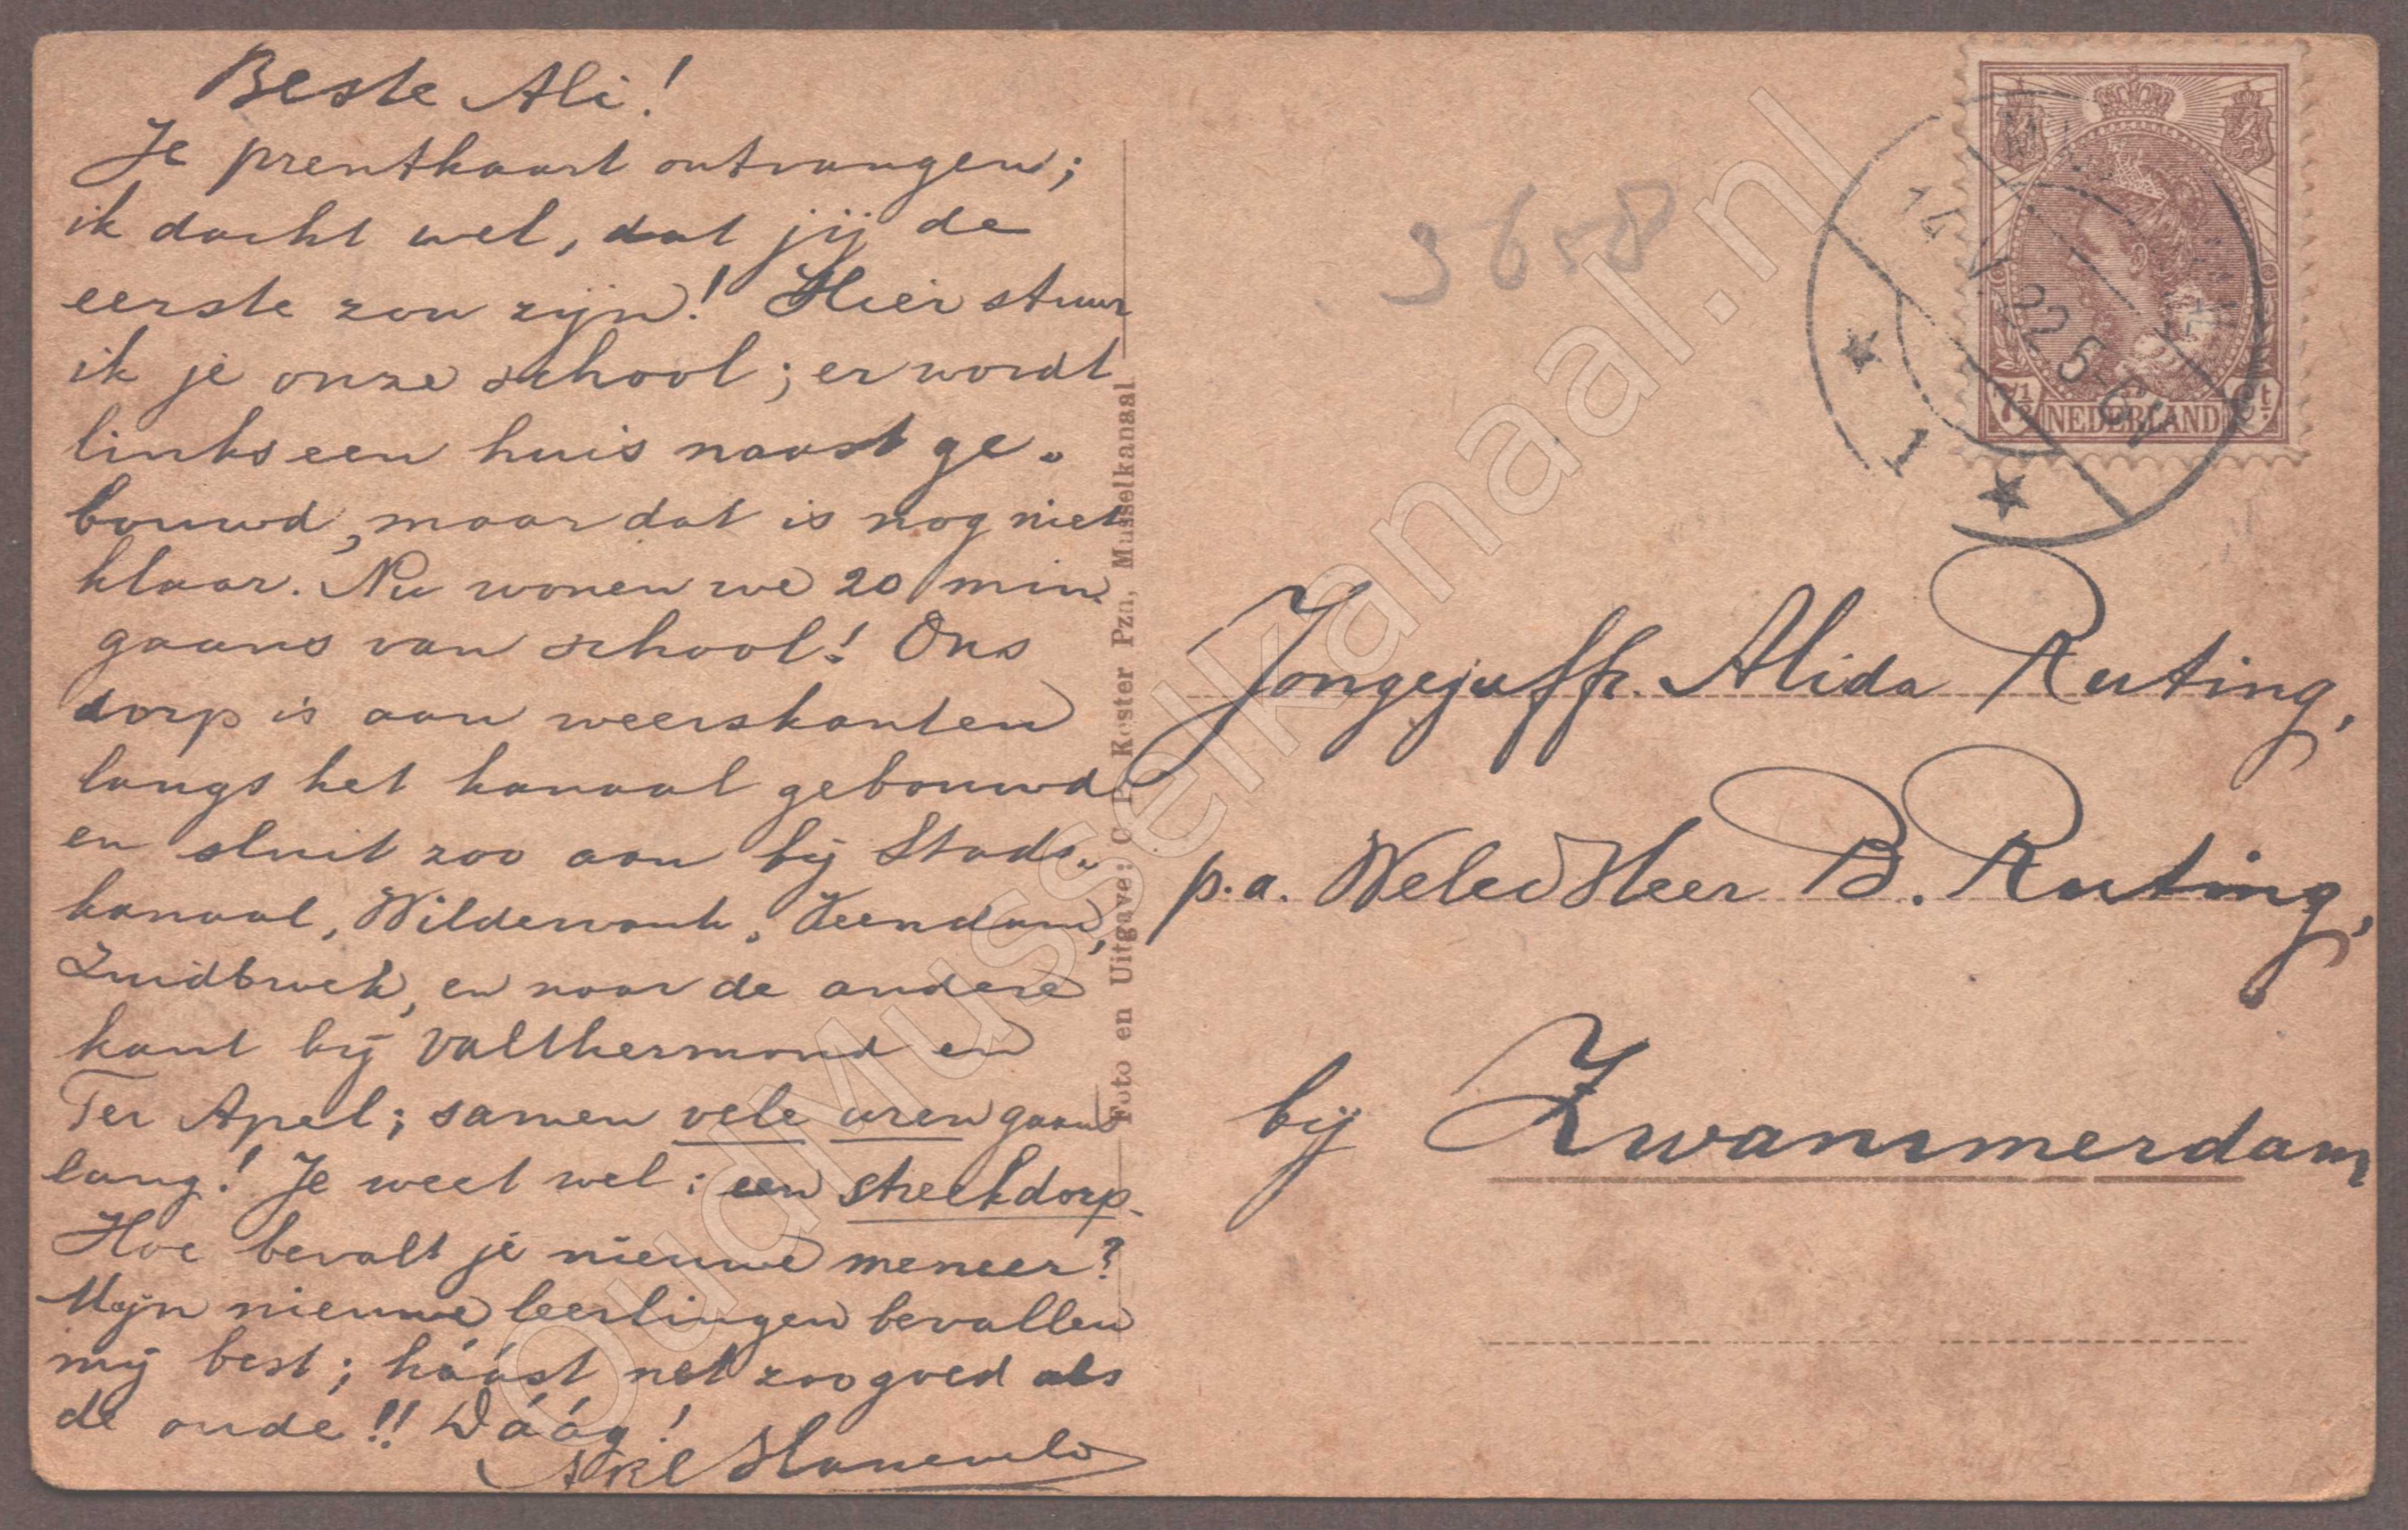 Beste Ali!
Je prentkaart ontvangen;
ik dacht wel, dat jij de
eerste zou zijn! Hier stuur
ik je onze school; er wordt
links een huis naast ge-
bouwd, maar dat is nog niet
klaar. Nu wonen we 20 min.
gaans van school! Ons
dorp is aan weerskanten
langs het kanaal gebouwd
en sluit zoo aan bij Stads-
kanaal, Wildervank, Veendam,
Zuidbroek, en naar de andere
kant bij Valthermond en
Ter Apel; samen vele uren gaans
lang! Je weet wel: een streekdorp.
Hoe bevalt je nieuwe meneer?
Mijn nieuwe leerlingen bevallen
mij best; háást net zoo goed als
de oude!! Dáág!
Foto en Uitgave: Kester Pzn, Musselkanaal
3658
1
22 5-6N
7½ NEDERLAND ct
Jongejuffr. Alida Ruting,
p.a. WelEd Heer B. Ruting,
bij Zwammerdam
OudMusselkanaal.nl